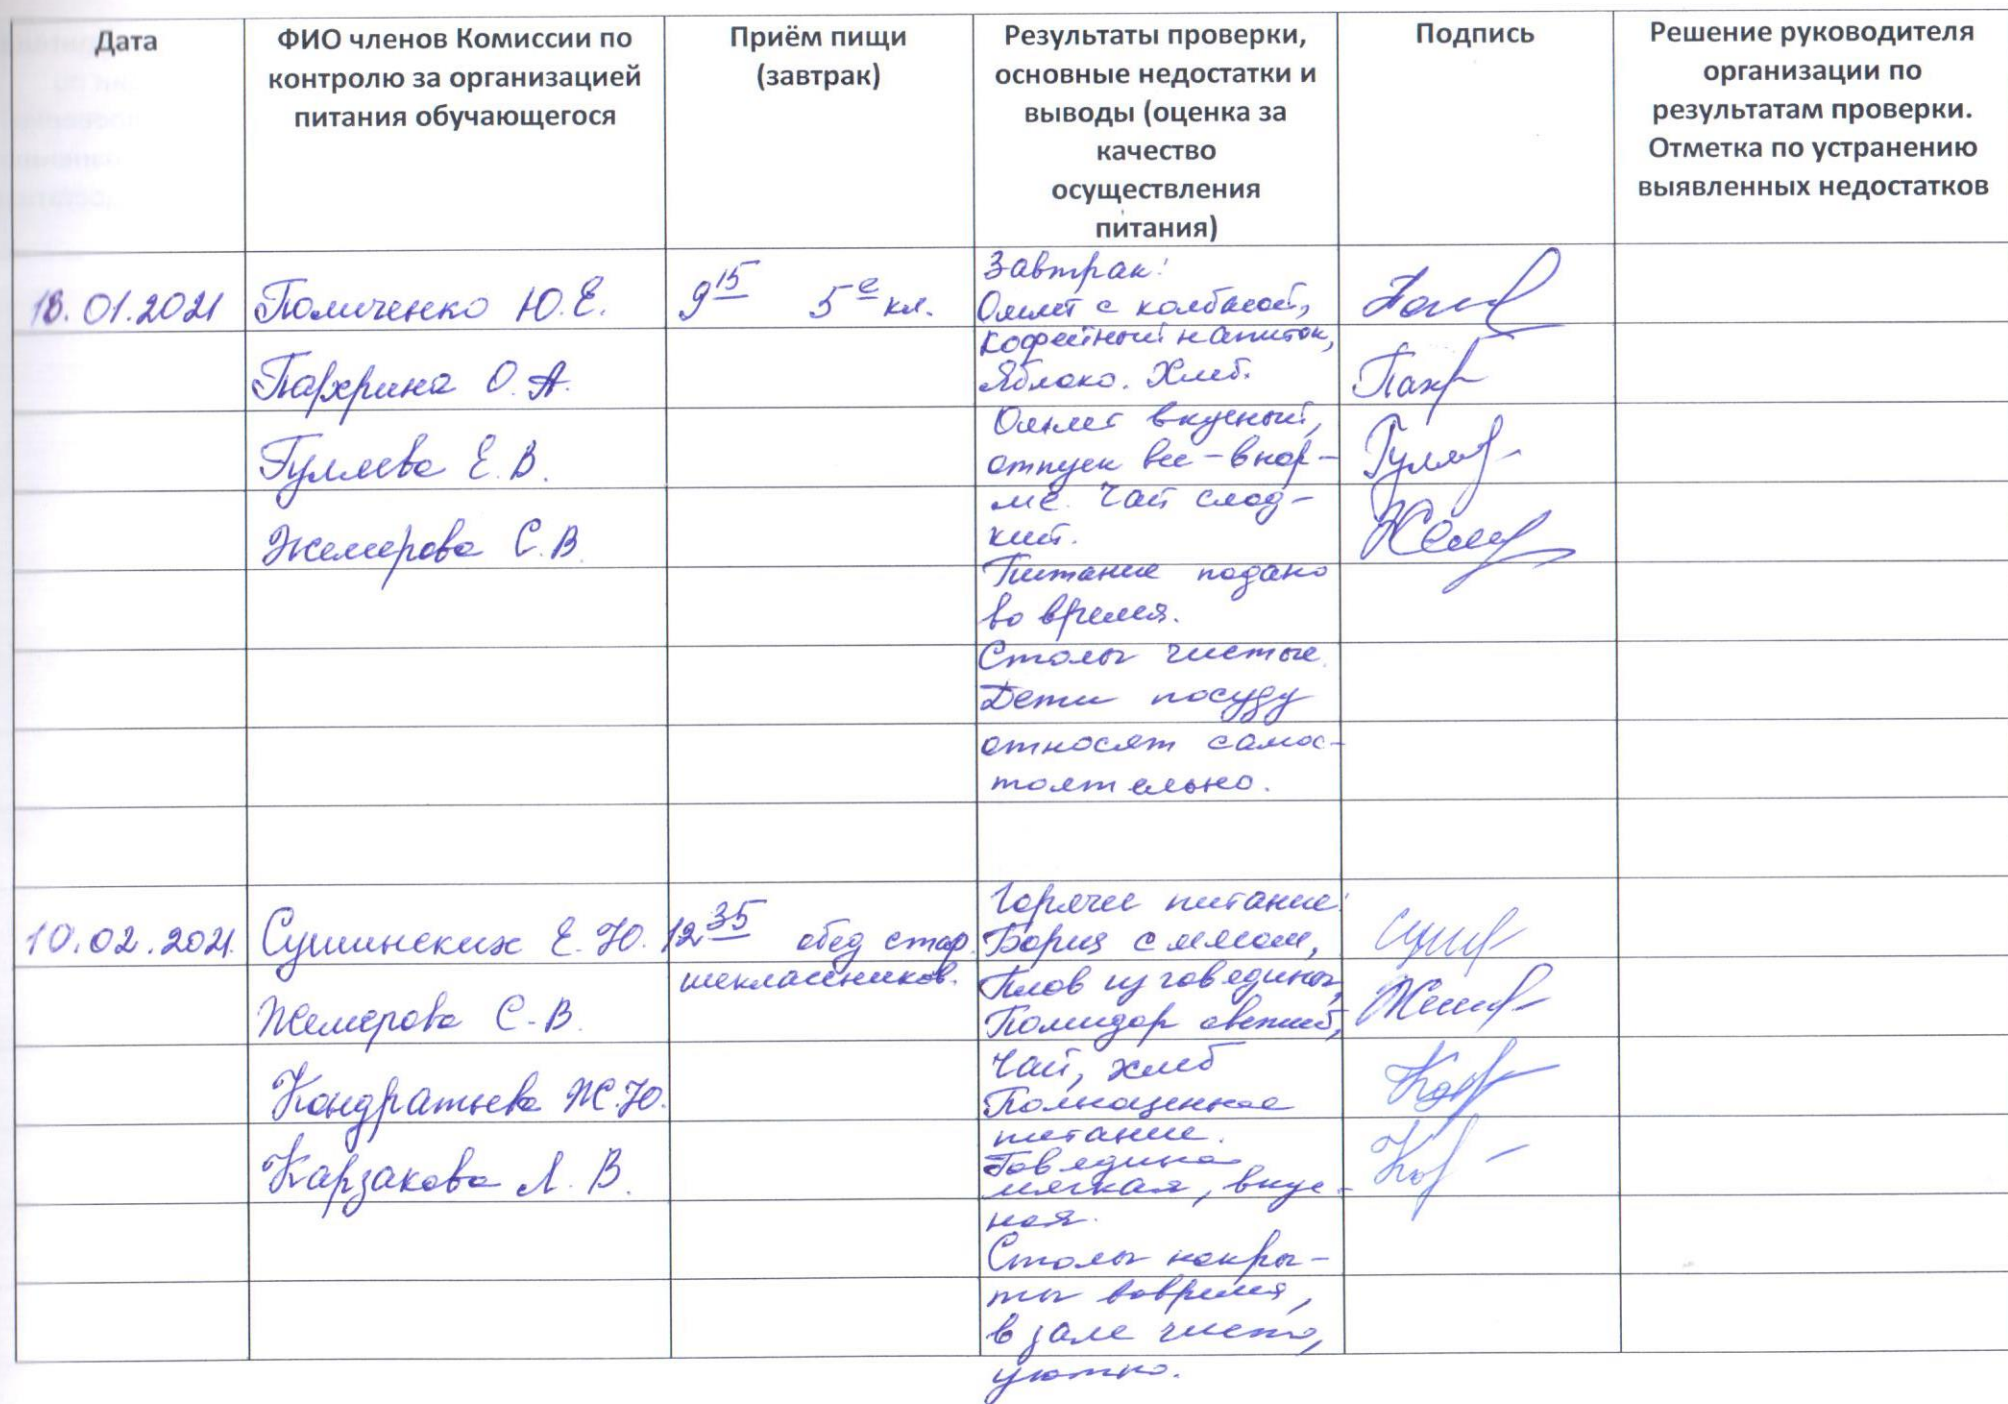 Дата
ФИО членов Комиссии по
контролю за организацией
питания обучающегося
Приём пищи
(завтрак)
Результаты проверки,
основные недостатки и
выводы (оценка за
качество
осуществления
питания)
Подпись
Решение руководителя
организации по
результатам проверки.
Отметка по устранению
выявленных недостатков
18.01.2021
Поличенко Ю.Е.
Пахрина О.А.
Гуляева Е.В.
Жемерова С.В.
9 15 5 е кл.
Завтрак:
Омлет с колбасой,
кофейный напиток,
Яблоко. Хлеб.
Омлет вкусный,
отпуск все - в нор-
ме. Чай слад-
кий.
Питание подано
во время.
Столы чистые.
Дети посуду
относят самос-
тоятельно.
10.02.2021.
Сушинских Е.Ю.
Жемерова С.В.
Кондратьева Ж.Ю.
Карзакова Л.В.
12 35 обед стар
шеклассников.
Горячее питание:
Борщ с мясом,
Плов из говядины,
Помидор свежий,
Чай, хлеб
Полноценное
питание.
Говядина
мягкая, вкус-
ная.
Столы накры-
ты вовремя,
в зале чисто,
уютно.